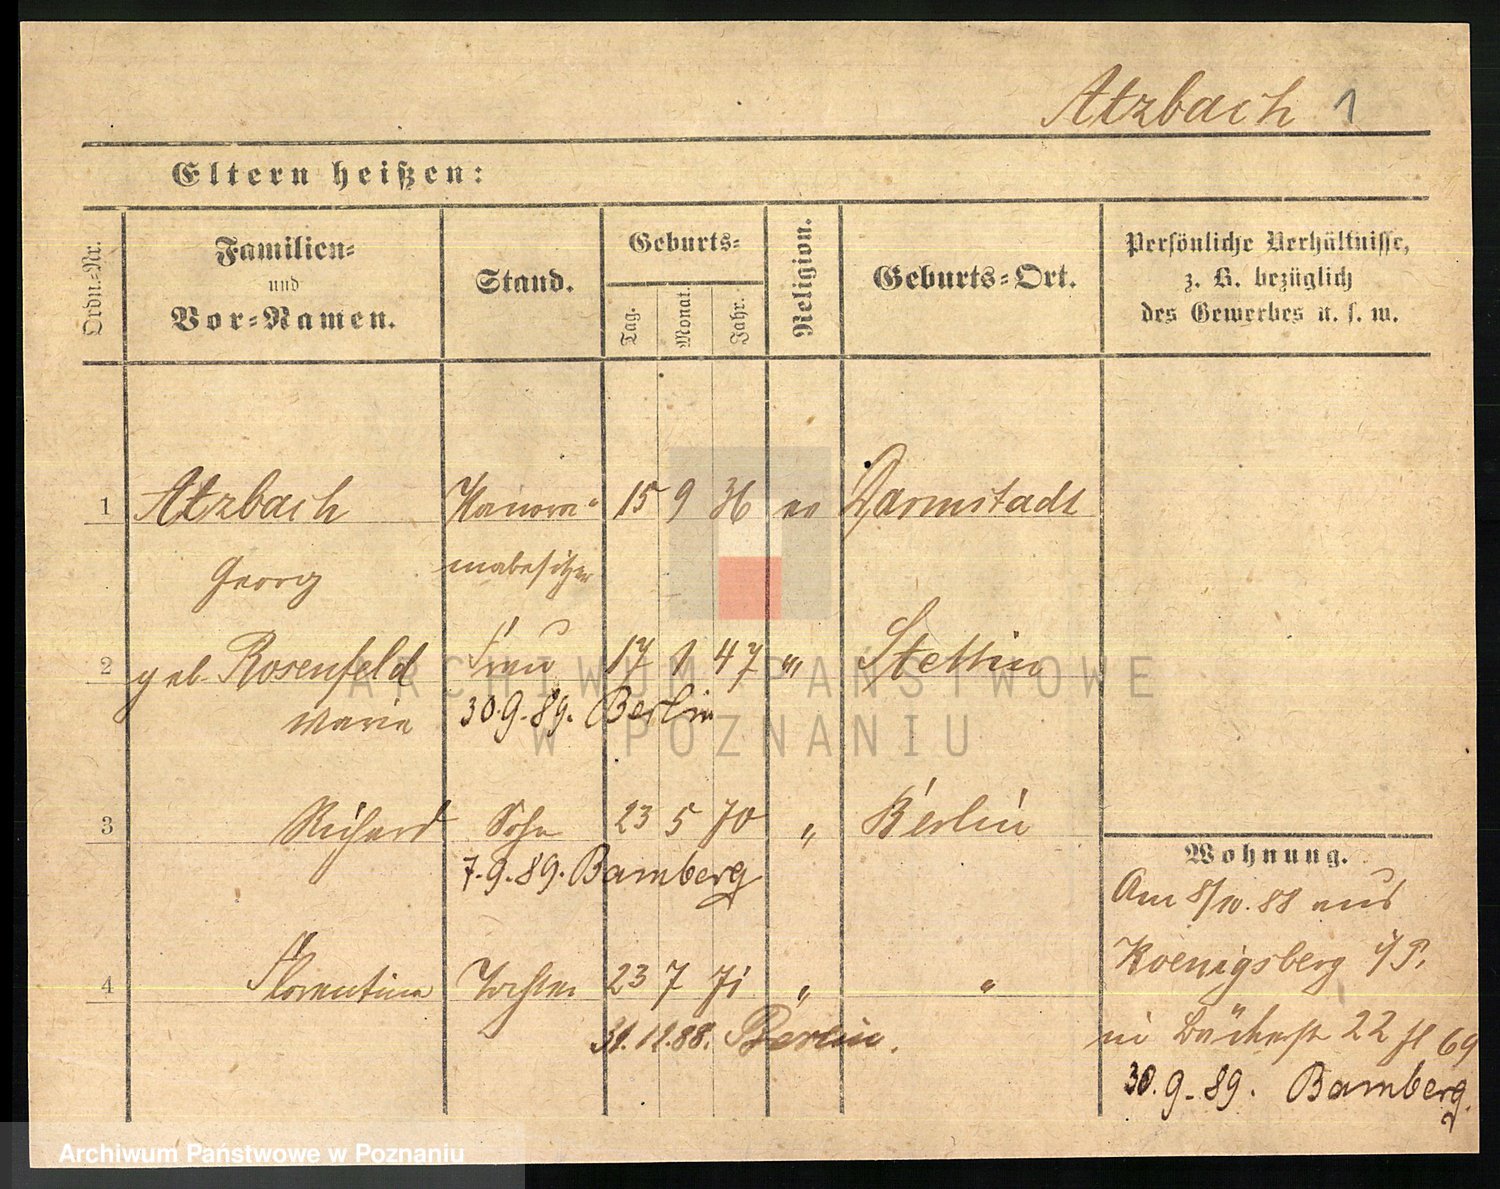 Atzbach 1
Eltern heißen:
Ordn.-Nr.
Familien-
und
Vor-Namen.
Stand.
Geburts-
Tag.
Monat.
Jahr.
Religion.
Geburts-Ort.
Persönliche Verhältnisse,
z. B. bezüglich
des Gewerbes u. s. w.
1 Atzbach Panora- 15 9 36 ev Darmstadt
Georg mabesitzer
2 geb Rosenfeld Frau 17 1 47 " Stettin
Marie 30.9.89. Berlin
3 Richard Sohn 23 5 70 " Berlin
7.9.89. Bamberg
4 Florentine Tochter 23 7 71 " "
31.12.88. Berlin.
Wohnung.
Am 8/10.88 aus
Koenigsberg i/P.
in Bäckerstr 22
30.9.89. Bamberg.
ARCHIWUM PAŃSTWOWE
W POZNANIU
Archiwum Państwowe w Poznaniu